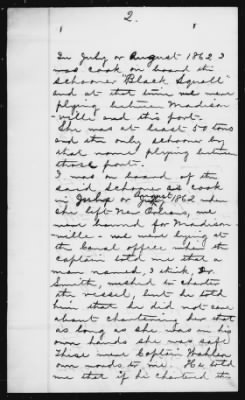 2.
In July or August 1862 I
was cook on board the
schooner "Black Squall"
and at that time we were
plying between Madison
-ville and this port.
She was at least 50 tons
and the only schooner by
that name plying between
those ports.
I was on board of the
said schooner as cook
in July or August 1862 when
she left New Orleans, we
were bound for Madison-
ville - we were lying at
the Canal office when the
captain told me that a
man named, I think, Dr.
Smith, wished to charter
the vessel, but he told
him that he did not care
about chartering her that
as long as she was in his
own hands she was safe
These were Captain
own words to me. He told
me that if he chartered the